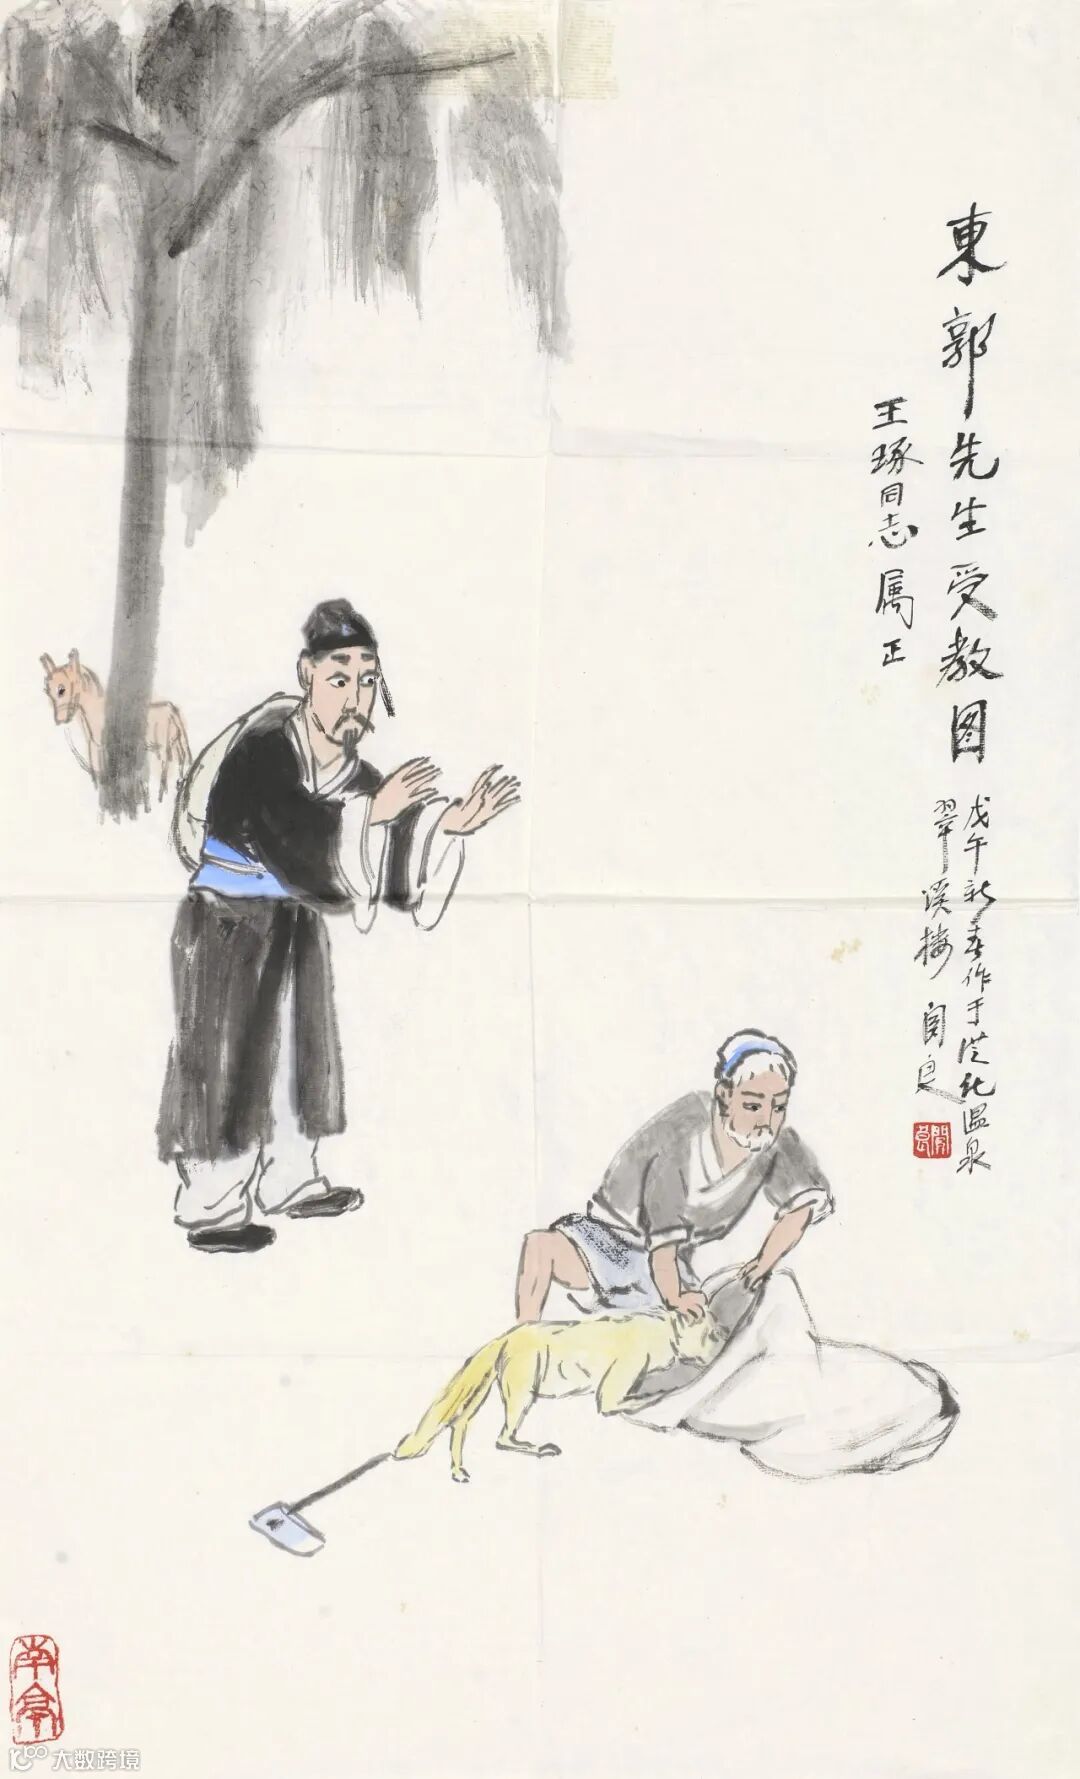 東郭先生受教图
戊午新春作于從化温泉
翠溪楼 関良
王琢同志属正
関良
南亭
大数跨境